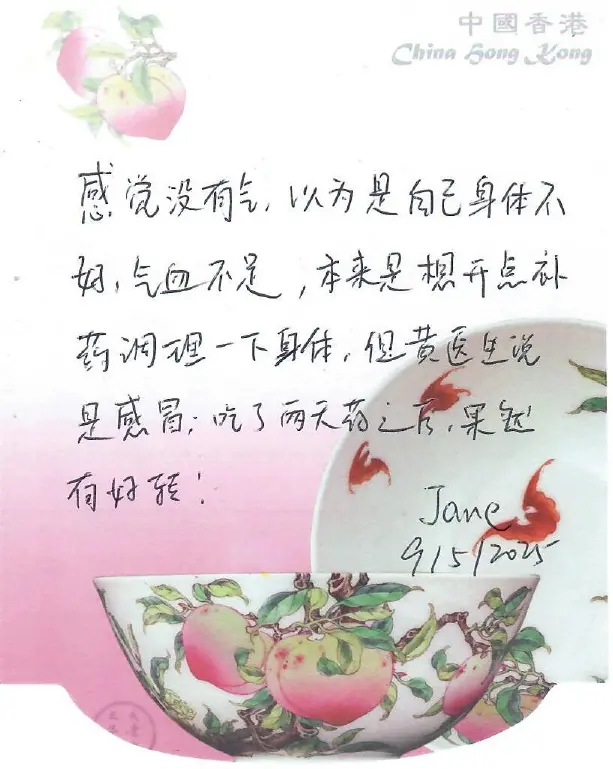 中國香港
China Hong Kong
感觉没有气，以为是自己身体不
好，气血不足，本来是想开点补
药调理一下身体，但黄医生说
是感冒；吃了两天药之后，果然
有好转！
Jane
9/5/2025